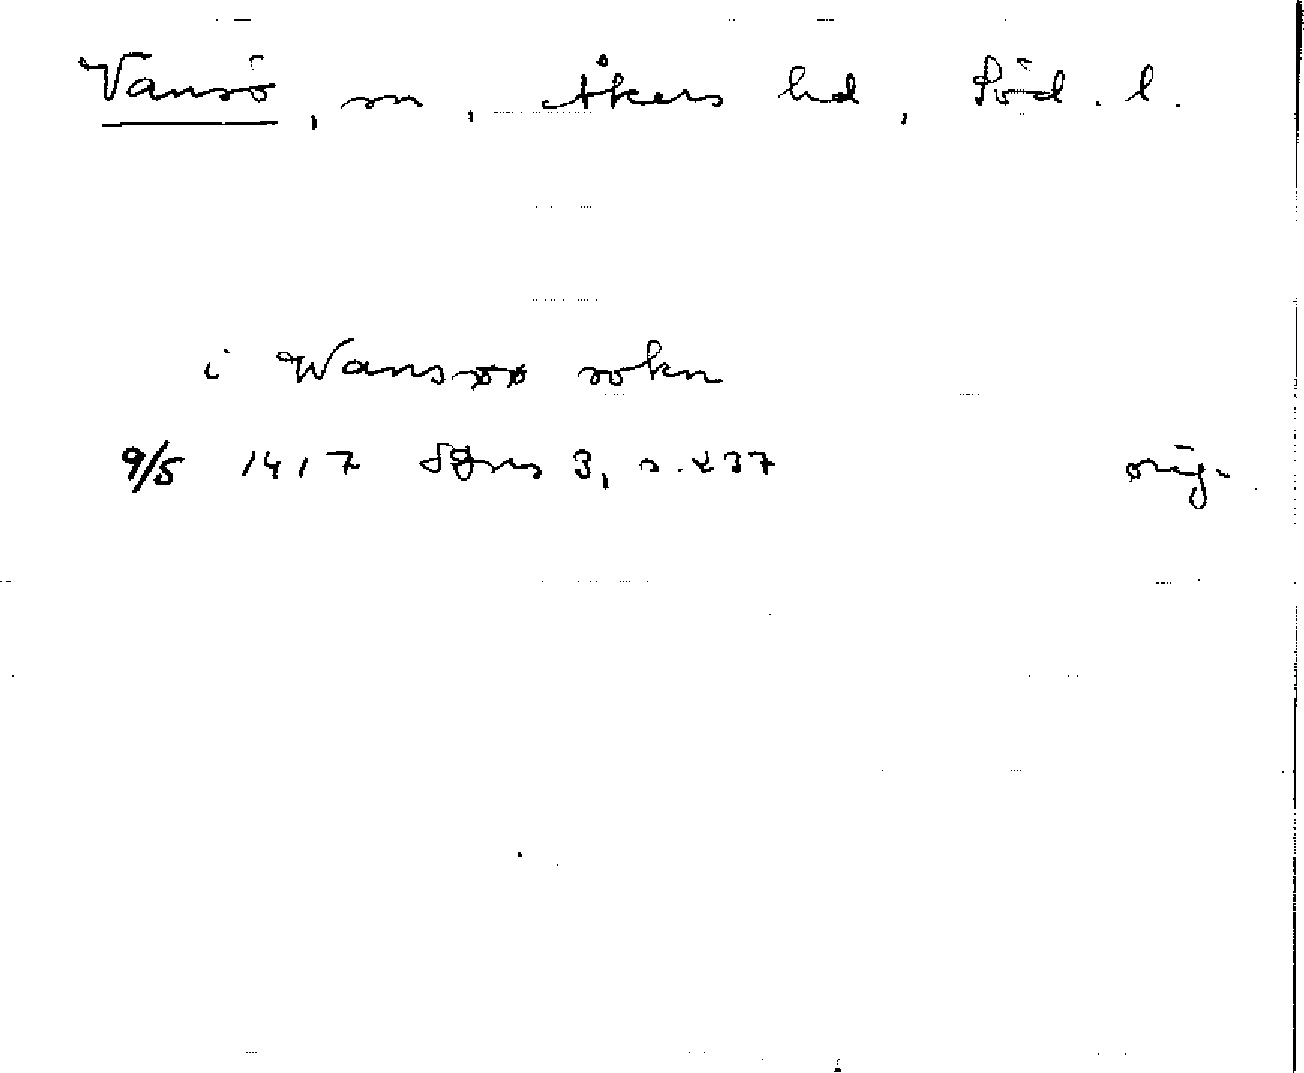 Vansö, sn, Åkers hd, Söd. l.
i Wansøø sokn
9/5 1417 SDns 3, s. 237 orig.